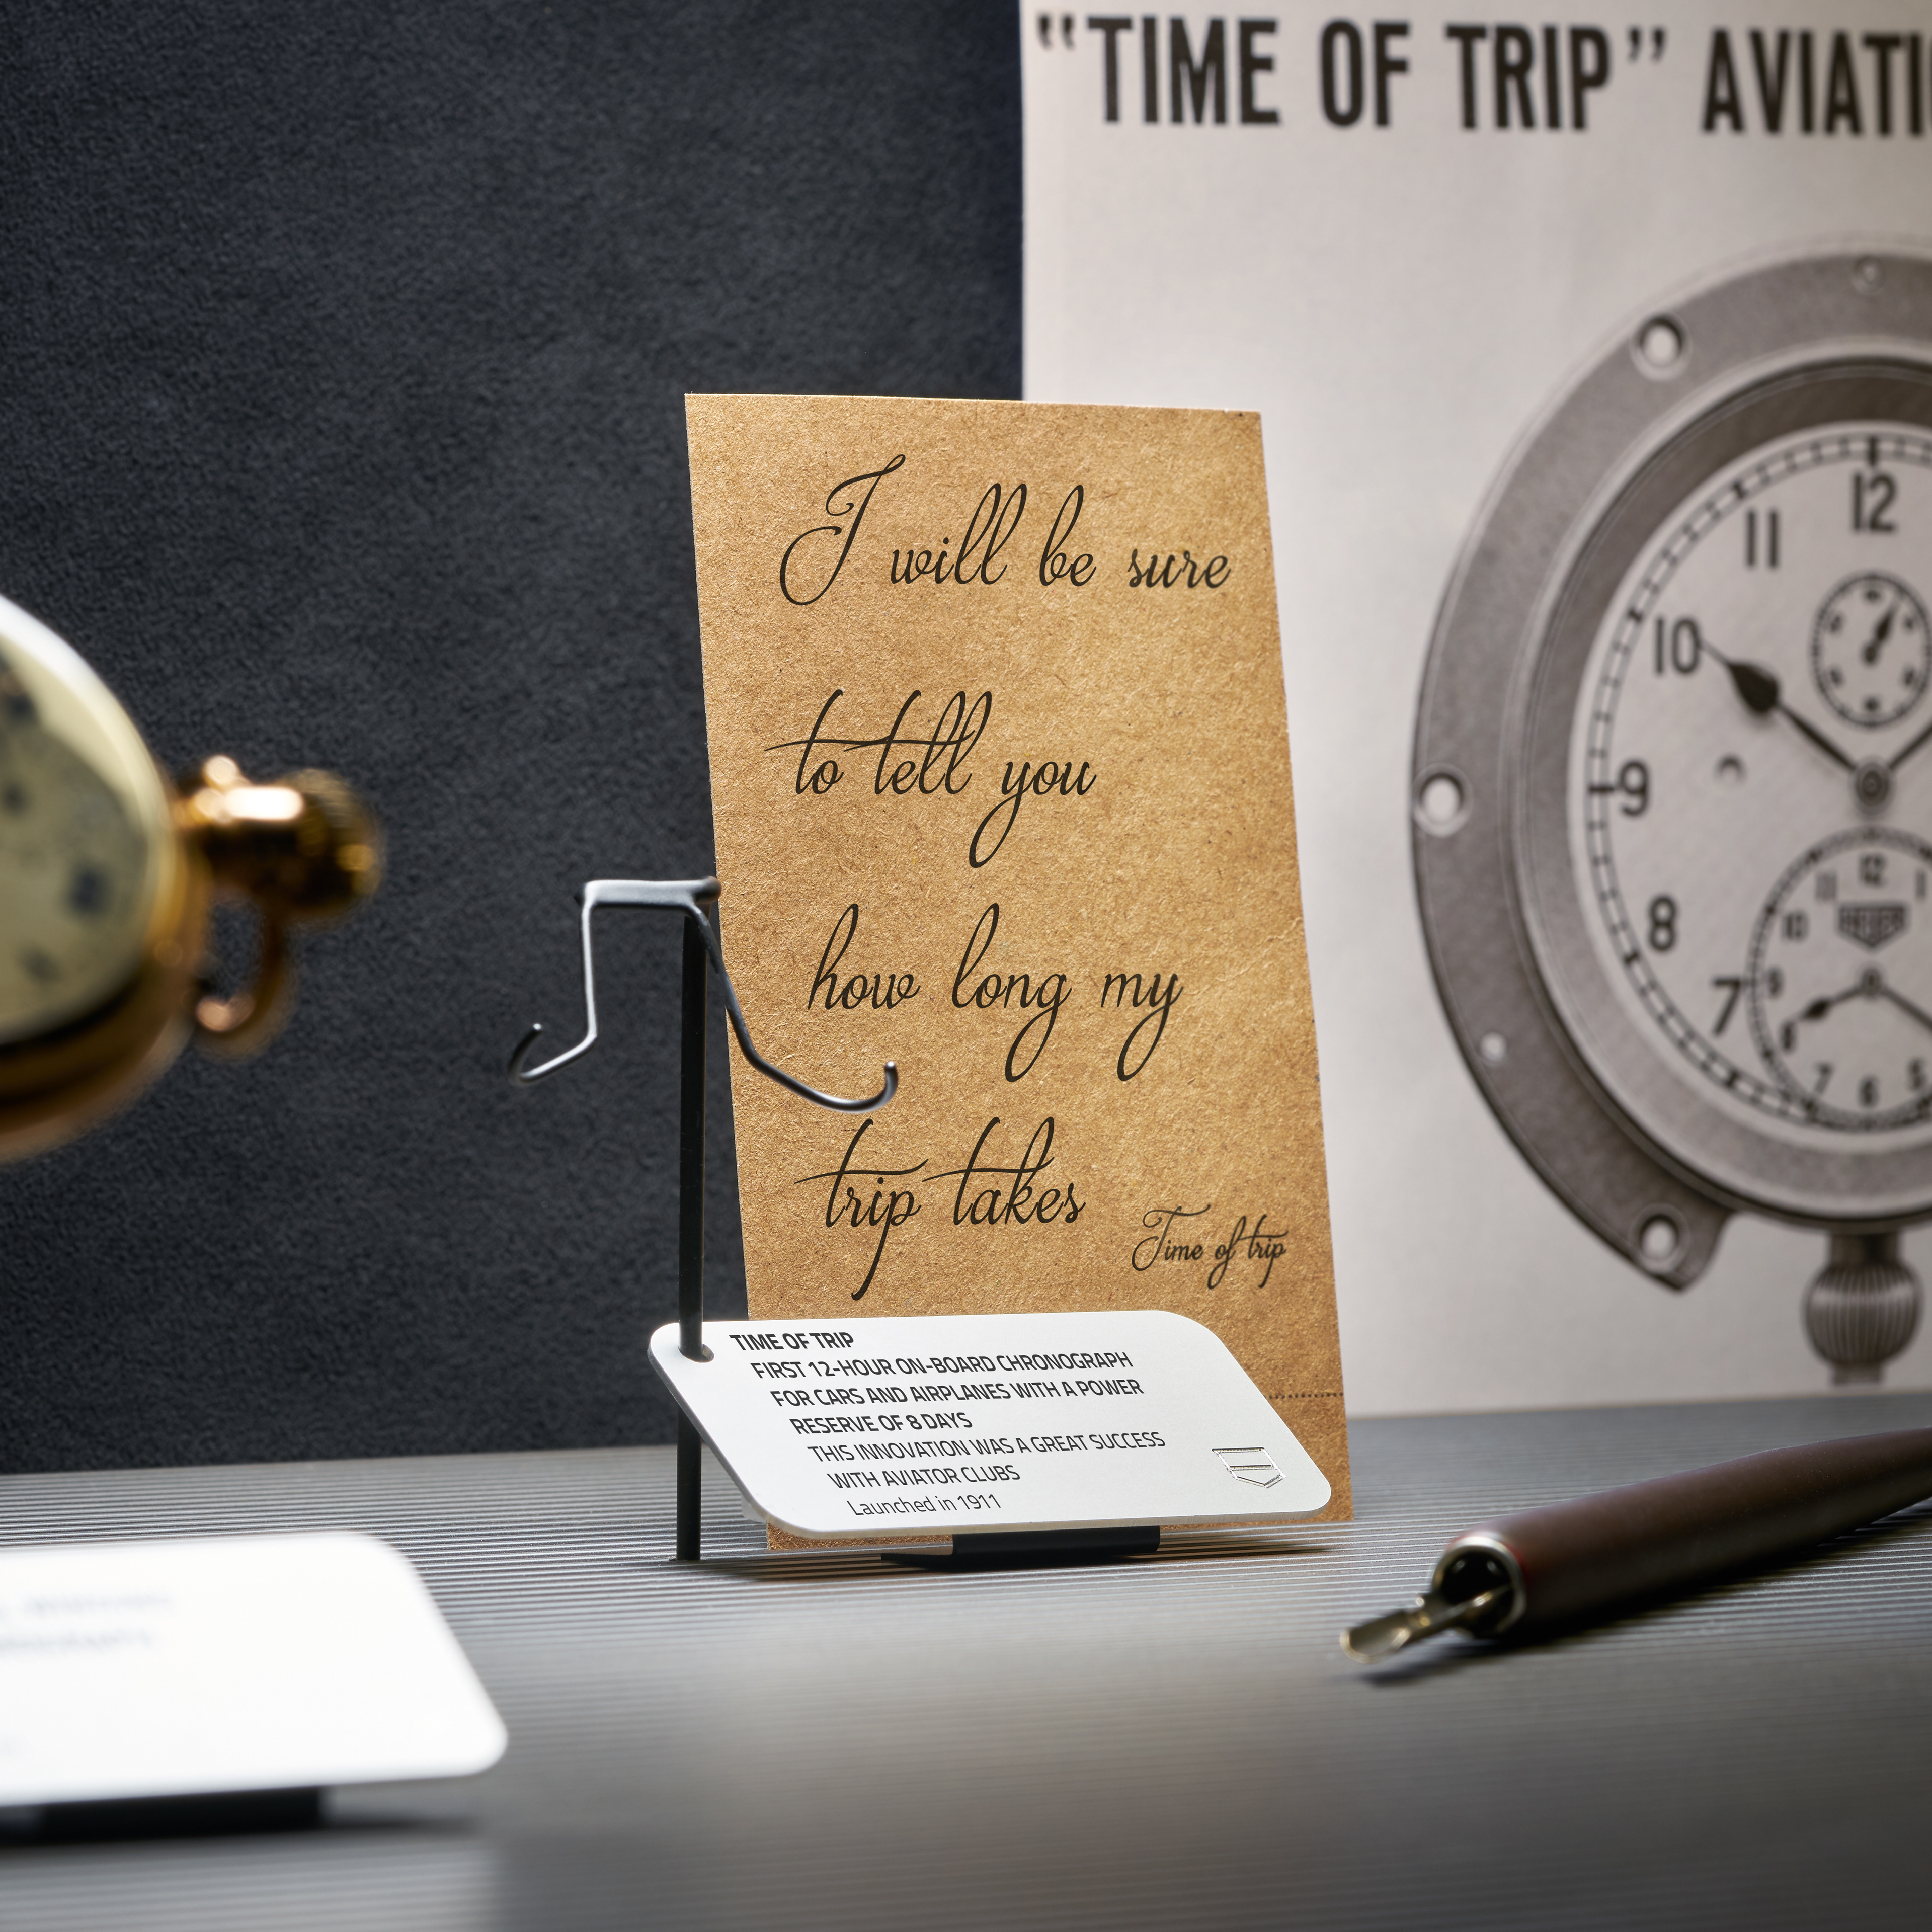 "TIME OF TRIP" AVIATI
I will be sure
to tell you
how long my
trip takes
Time of trip
TIME OF TRIP
FIRST 12-HOUR ON-BOARD CHRONOGRAPH
FOR CARS AND AIRPLANES WITH A POWER
RESERVE OF 8 DAYS
THIS INNOVATION WAS A GREAT SUCCESS
WITH AVIATOR CLUBS
Launched in 1911
12
11
10
9
8
7
12
11
1
10
9
8
7
6
5
HEUER